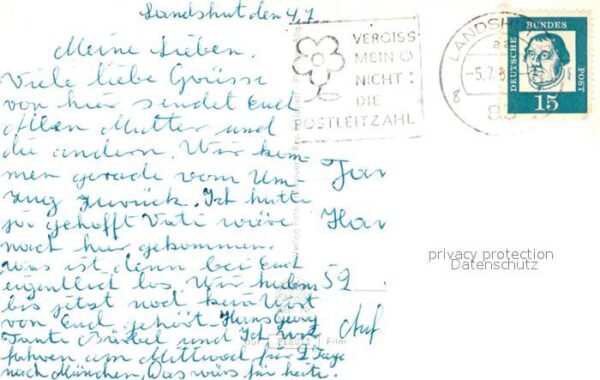 Landshut den 4.7.
Meine Lieben.
Viele liebe Grüsse
von hier sendet Euch
Allen Mutter und
die andern. Wir kom-
men gerade vom Um-
zug zurück. Ich hatte
so gehofft Vati wäre
noch hier gekommen.
Was ist denn bei Euch
eigentlich los. Wir haben
bis jetzt noch kein Wort
von Euch gehört Hans Georg
Tante Bärbel und Ich
fahren am Mittwoch für 2 Tage
nach München. Was wärs für heute.
VERGISS
MEIN
NICHT:
DIE
POSTLEITZAHL
LANDSH
-5.7.
8
DEUTSCHE BUNDES POST
15
Fam
59
Auf
privacy protection
Datenschutz